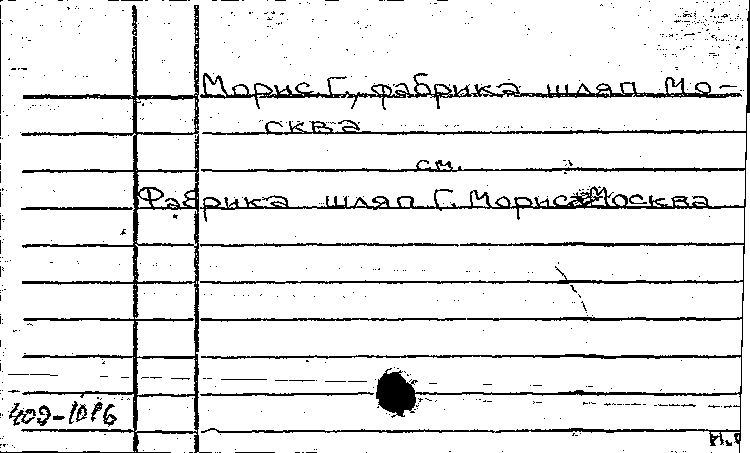 Морис Г., фабрика шляп Мо-
сква
см.
Фабрика шляп Г. Мориса Москва